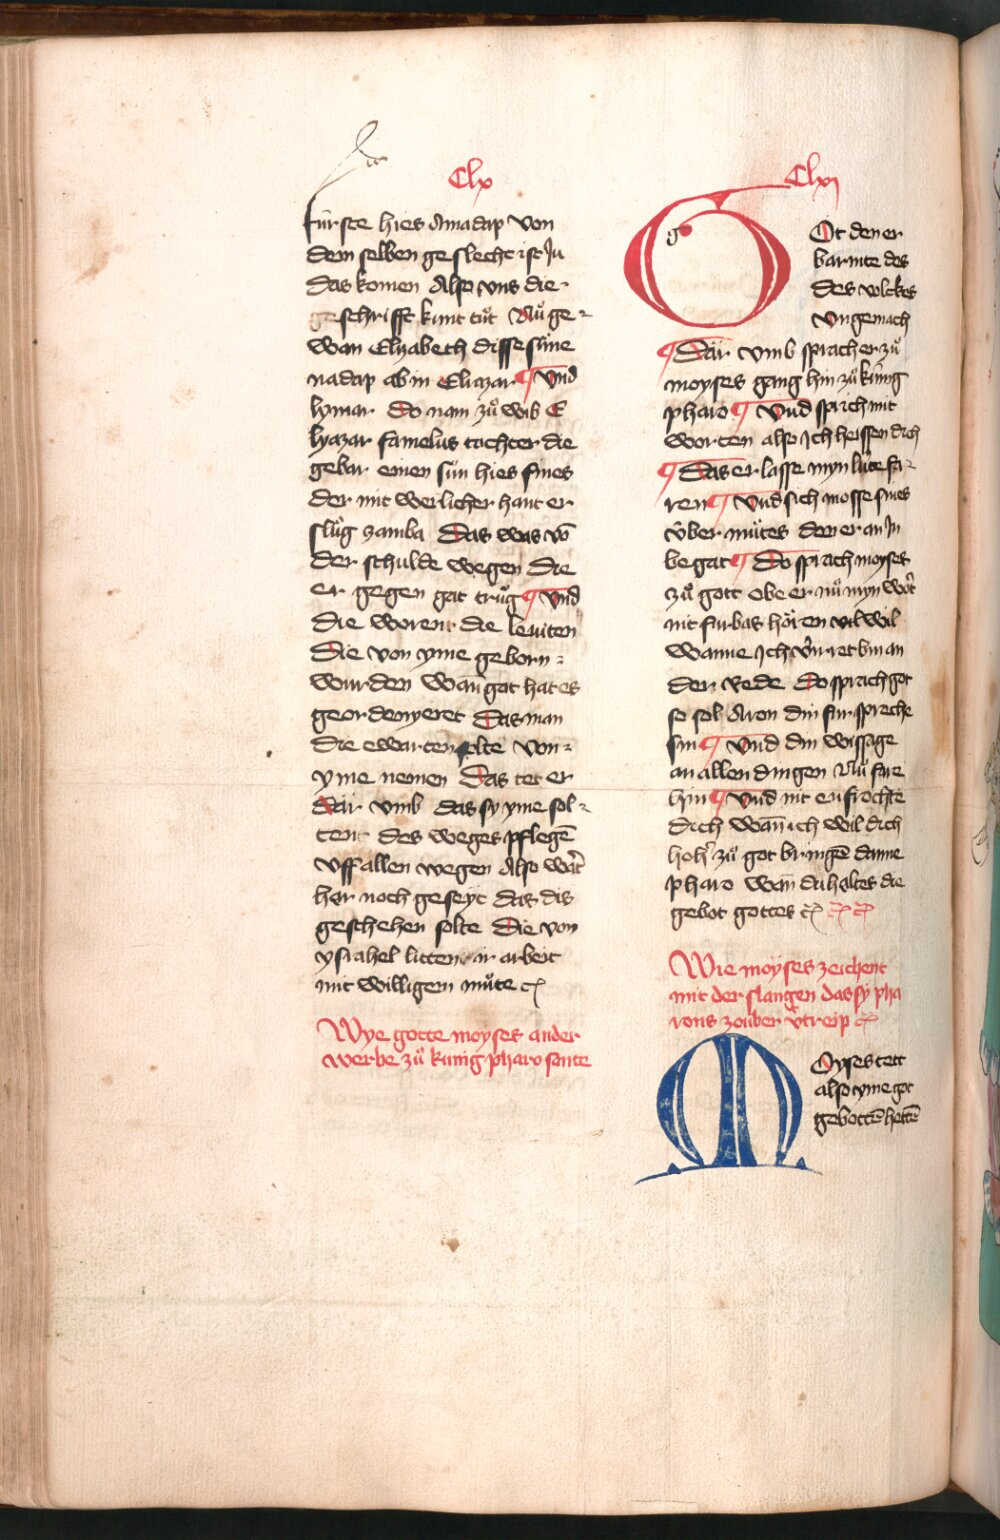 Clx
fürste hies Amadap Von
dem selben geslecht ist Ju
das komen Also vns die
geschrifft kunt tuͦt Nuͦ ge-
wan Elyabeth disse süne
nadap abin Eliazar ¶ Vnd
hymar Do nam zuͦ wib E
lyazar famelus tochter die
gebar einen sün hies fines
der mit werlicher hant er
sluͦg zamba Das was vō
der schulde wegen die
er gegen gat truͦg ¶ Vnd
die worent die leuiten
Die von yme geborn
wurden Wan got hat es
geordenyeret Das man
die ewarten solte Von
yme nemen Das tet er
Dar vmb das sy yme sol-
tent des weges pflegē
Vff allen wegen Also wart
har noch geseyt das dis
geschehen solte Die von
ysrahel littent ir arbeit
mit willigem muͦte
Wye gotte moyses ander
werbe zuͦ künig pharo sente
Clxj
Ot den er
barmte des
des volckes
Vngemach
¶ Dar vmb sprach er zuͦ
moyses gang hin zuͦ künig
pharo ¶ Vnd sprich mit
worten also Jch heissen dich
¶ Das er lasse myn lüte fa-
ren ¶ Vnd sich mosse sines
über muͦtes den er an Jn
begat ¶ Do sprach moyses
zuͦ gott obe er nuͦ myn wort
nit fürbas hören vil wil
Wanne Jch vnret bin an
der Rede Do sprach got
so sol Aron din für spreche
sin ¶ Vnd din wissage
an allen dingen Nuͦ fare
hyn ¶ Vnd nit enfröchte
dich Wan ich wil dich
hoher zuͦ got bringē danne
pharo Wan du haltes die
gebot gottes
Wie moyses zeichent
mit der slangen das sy pha
rons zouber vertreip
Oyses tett
also yme got
gebottē hettē